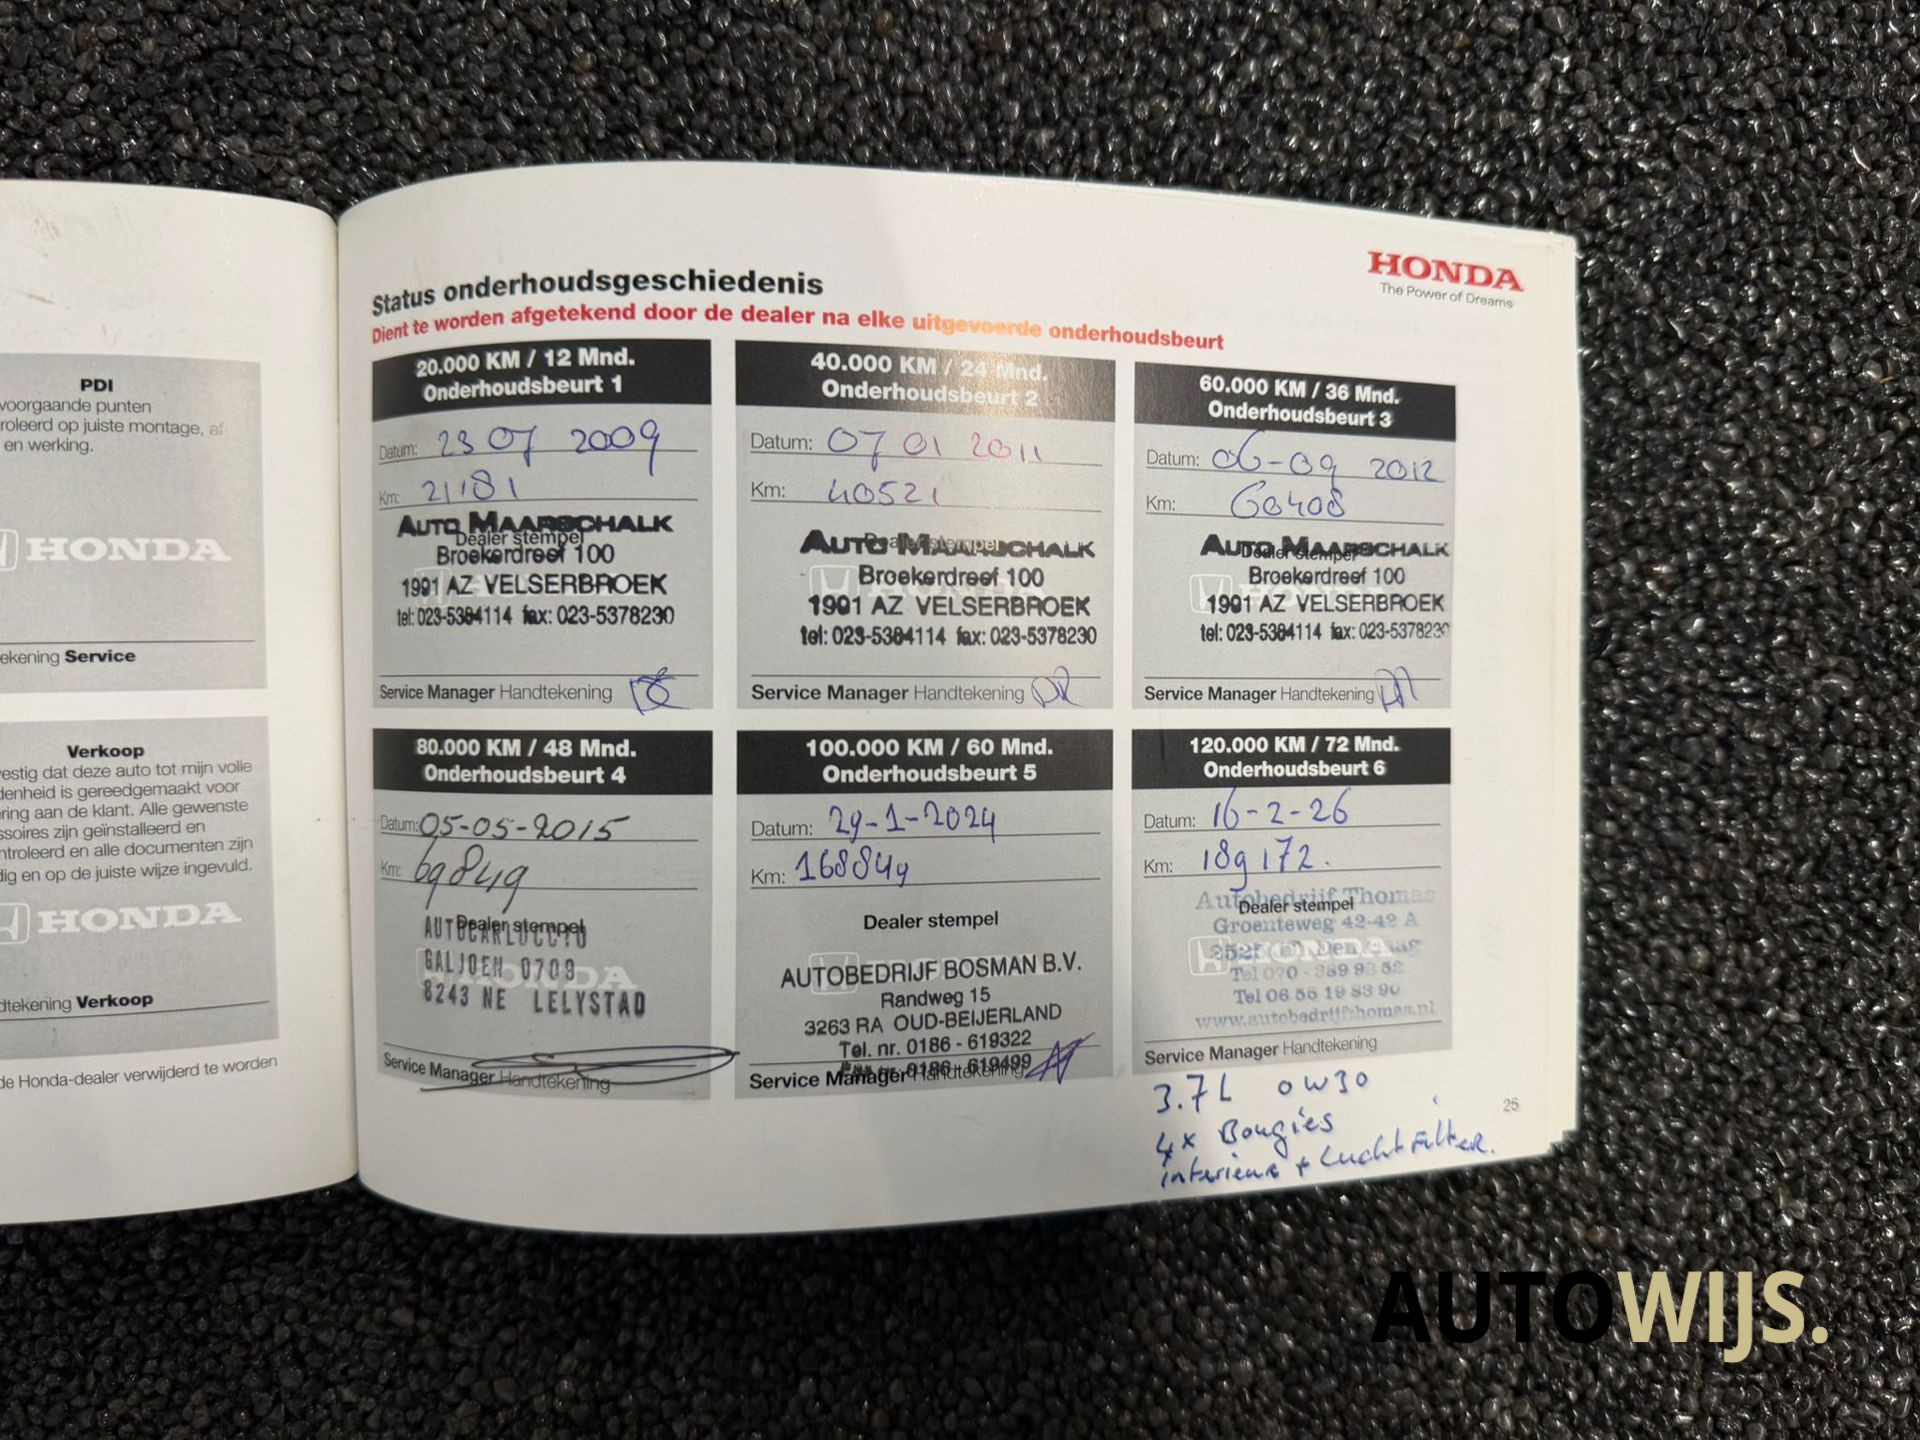 PDI
voorgaande punten
roleerd op juiste montage, af-
en werking.
HONDA
ekening Service
Verkoop
vestig dat deze auto tot mijn volle
denheid is gereedgemaakt voor
ering aan de klant. Alle gewenste
ssoires zijn geïnstalleerd en
ntroleerd en alle documenten zijn
dig en op de juiste wijze ingevuld.
HONDA
dtekening Verkoop
de Honda-dealer verwijderd te worden
HONDA
The Power of Dreams
Status onderhoudsgeschiedenis
Dient te worden afgetekend door de dealer na elke uitgevoerde onderhoudsbeurt
20.000 KM / 12 Mnd.
Onderhoudsbeurt 1
Datum: 23 07 2009
Km: 21181
Dealer stempel
AUTO MAARSCHALK
Broekerdreef 100
1991 AZ VELSERBROEK
tel: 023-5384114 fax: 023-5378230
Service Manager Handtekening
40.000 KM / 24 Mnd.
Onderhoudsbeurt 2
Datum: 07 01 2011
Km: 40521
Dealer stempel
AUTO MAARSCHALK
Broekerdreef 100
1991 AZ VELSERBROEK
tel: 023-5384114 fax: 023-5378230
Service Manager Handtekening
60.000 KM / 36 Mnd.
Onderhoudsbeurt 3
Datum: 06-09 2012
Km: 60408
Dealer stempel
AUTO MAARSCHALK
Broekerdreef 100
1991 AZ VELSERBROEK
tel: 023-5384114 fax: 023-5378230
Service Manager Handtekening
80.000 KM / 48 Mnd.
Onderhoudsbeurt 4
Datum: 05-05-2015
Km: 69849
Dealer stempel
GALJOEN 0709
8243 NE LELYSTAD
Service Manager Handtekening
100.000 KM / 60 Mnd.
Onderhoudsbeurt 5
Datum: 29-1-2024
Km: 168849
Dealer stempel
AUTOBEDRIJF BOSMAN B.V.
Randweg 15
3263 RA OUD-BEIJERLAND
Tel. nr. 0186 - 619322
0186 - 619499
Service Manager Handtekening
120.000 KM / 72 Mnd.
Onderhoudsbeurt 6
Datum: 16-2-26
Km: 189172.
Dealer stempel
Autobedrijf Thomas
Groenteweg 42-42 A
2525 Den Haag
Tel 070 - 389 93 58
Tel 06 55 19 83 90
www.autobedrijfthomas.nl
Service Manager Handtekening
3.7L 0W30
4x Bougies
interieur + Luchtfilter.
25
AUTOWIJS.